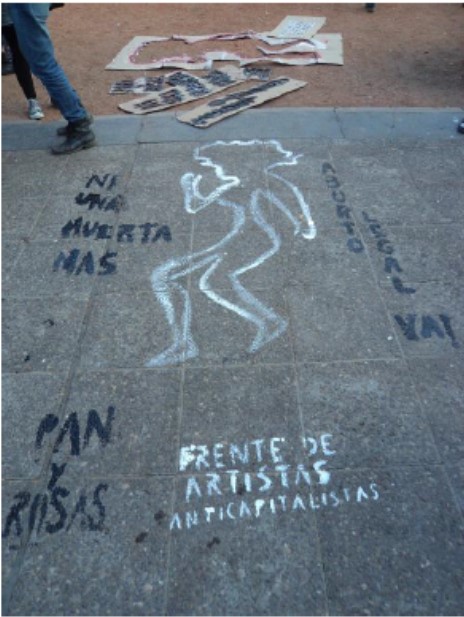 NI
UNA
MUERTA
MAS
ABORTO
LEGAL
YA!
PAN
Y
ROSAS
FRENTE DE
ARTISTAS
ANTICAPITALISTAS